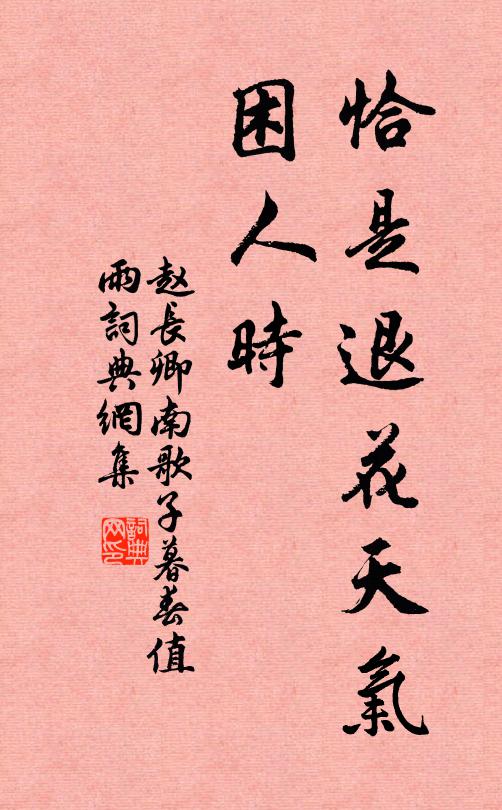 恰是退花天氣
困人時
赵長卿南歌子暮春值
雨詞典網集
詞典
网印